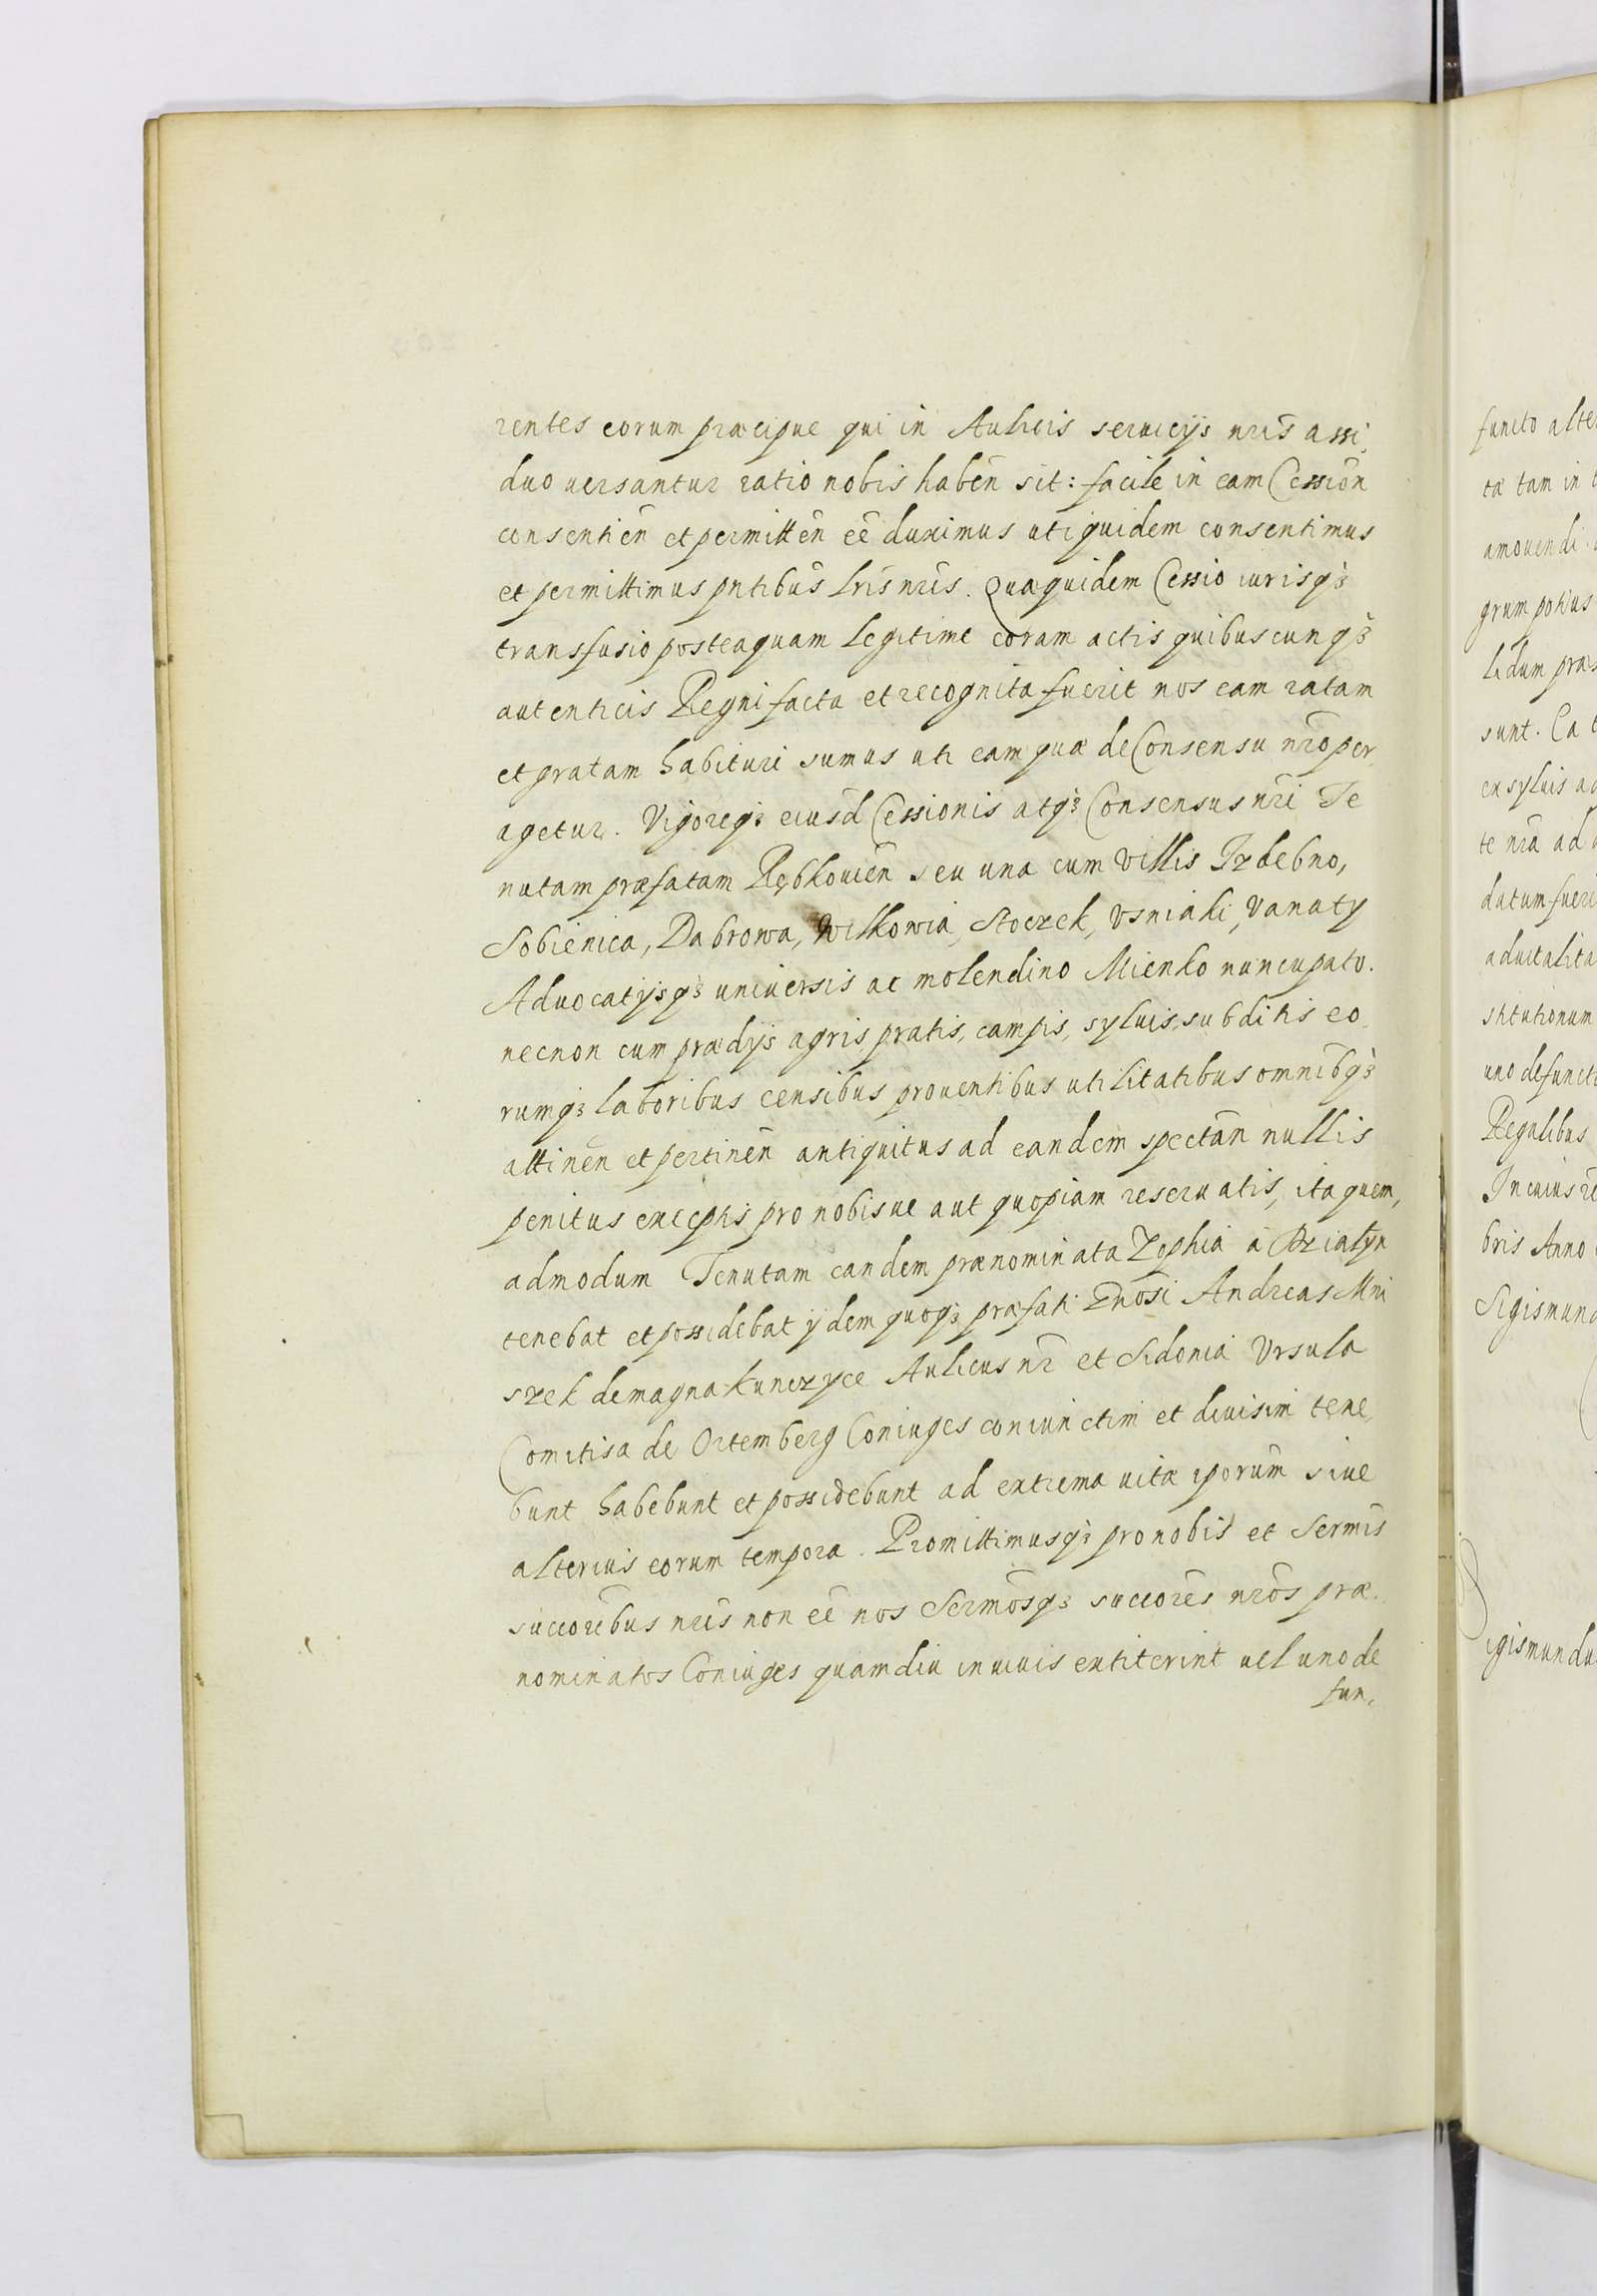 rentes eorum præcipue qui in Aulicis seruicijs nr̃is assi,
duo uersantur ratio nobis habeñ sit: facile in eam Cessioñ
consentieñ et permitteñ eẽ duximus uti quidem consentimus
et permittimus pñtibus lr̃is nr̃is. Quæ quidem Cessio iurisqꝫ
transfusio posteaquam legitime coram actis quibuscunqꝫ
autenticis Regni facta et recognita fuerit nos eam ratam
et gratam habituri sumus uti eam quæ de Consensu nr̃o per,
agetur. Vigoreqꝫ eiusd̃ Cessionis atqꝫ Consensus nr̃i Te
nutam præfatam Rębkouieñ seu una cum Villis Izdebno,
Sobienica, Dabrowa, Wilkowia, Stoczek, Vsniaki, Vanaty
Aduocatijsqꝫ uniuersis ac molendino Mienko nuncupato.
necnon cum prædijs agris pratis, campis, syluis, subditis eo,
rumqꝫ laboribus censibus prouentibus utilitatibus omnibqꝫ
attineñ et pertineñ antiquitus ad eandem spectañ nullis
penitus exceptis pro nobisue aut quopiam reseruatis, ita quem,
admodum Tenutam eandem prænominata Zophia à Dzialyn
tenebat et possidebat ijdem quoqꝫ præfati Gñosi Andreas Mni
szek de magna Kunczyce Aulicus nr̃ et Sidonia Vrsula
Comitisa de Ortemberg Coniuges coniunctim et diuisim tene,
bunt habebunt et possidebunt ad extrema uitæ ip̃orum siue
alterius eorum tempora. Promittimusqꝫ pro nobis et Sermis
succoribus nr̃is non eẽ nos Sermosqꝫ succores nr̃os præ,
nominatos Coniuges quamdiu in uiuis extiterint uel uno de
fun,
functo alte
tæ tam in
amouendi
grum potius
lidum præ
sunt. Ca
ex syluis a
te nr̃a ad
datum fueri
aduitalita
stitutionum
uno defuncto
Regalibus
In cuius re
bris Anno
Sigismund
igismundu